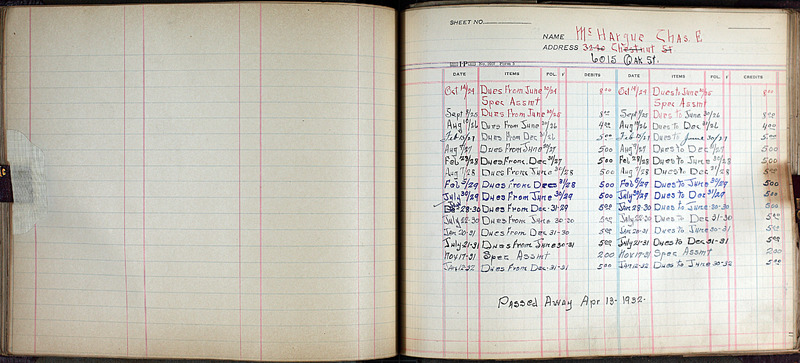 SHEET NO.
NAME McHargue Chas. E
ADDRESS 3210 Chestnut St
6015 Oak St.
DATE ITEMS FOL. F DEBITS DATE ITEMS FOL. F CREDITS
Oct 14/24 Dues From June 30/24 8 00 Oct 14/24 Dues to June 30/25 8 00
Spec Assmt Spec Assmt
Sept 8/25 Dues From June 30/25 8 00 Sept 8/25 Dues to June 30/26 8 00
Aug 16/26 Dues From June 30/26 4 00 Aug 16/26 Dues to Dec 31/26 4 00
Feb 10/27 Dues From Dec 31/26 5 00 Feb 10/27 Dues to June 30/27 5 00
Aug 9/27 Dues From June 30/27 5 00 Aug 9/27 Dues to Dec 31/27 5 00
Feb 28/28 Dues From Dec 31/27 5 00 Feb 28/28 Dues to June 30/28 5 00
Aug 7/28 Dues From June 30/28 5 00 Aug 7/28 Dues to Dec 31/28 5 00
Feb 5/29 Dues From Dec 31/28 5 00 Feb 5/29 Dues to June 30/29 5 00
July 30/29 Dues From June 30/29 5 00 July 30/29 Dues to Dec 31/29 5 00
28-30 Dues From Dec 31-29 5 00 Jan 28-30 Dues to June 30-30 5 00
July 22-30 Dues From June 30-30 5 00 July 22-30 Dues to Dec 31-30 5 00
Jan 20-31 Dues From Dec 31-30 5 00 Jan 20-31 Dues to June 30-31 5 00
July 21-31 Dues From June 30-31 5 00 July 21-31 Dues to Dec 31-31 5 00
Nov 17-31 Spec Assmt 2 00 Nov 17-31 Spec Assmt 2 00
Jan 12-32 Dues From Dec 31-31 5 00 Jan 12-32 Dues to June 30-32 5 00
Passed Away Apr 13-1932.